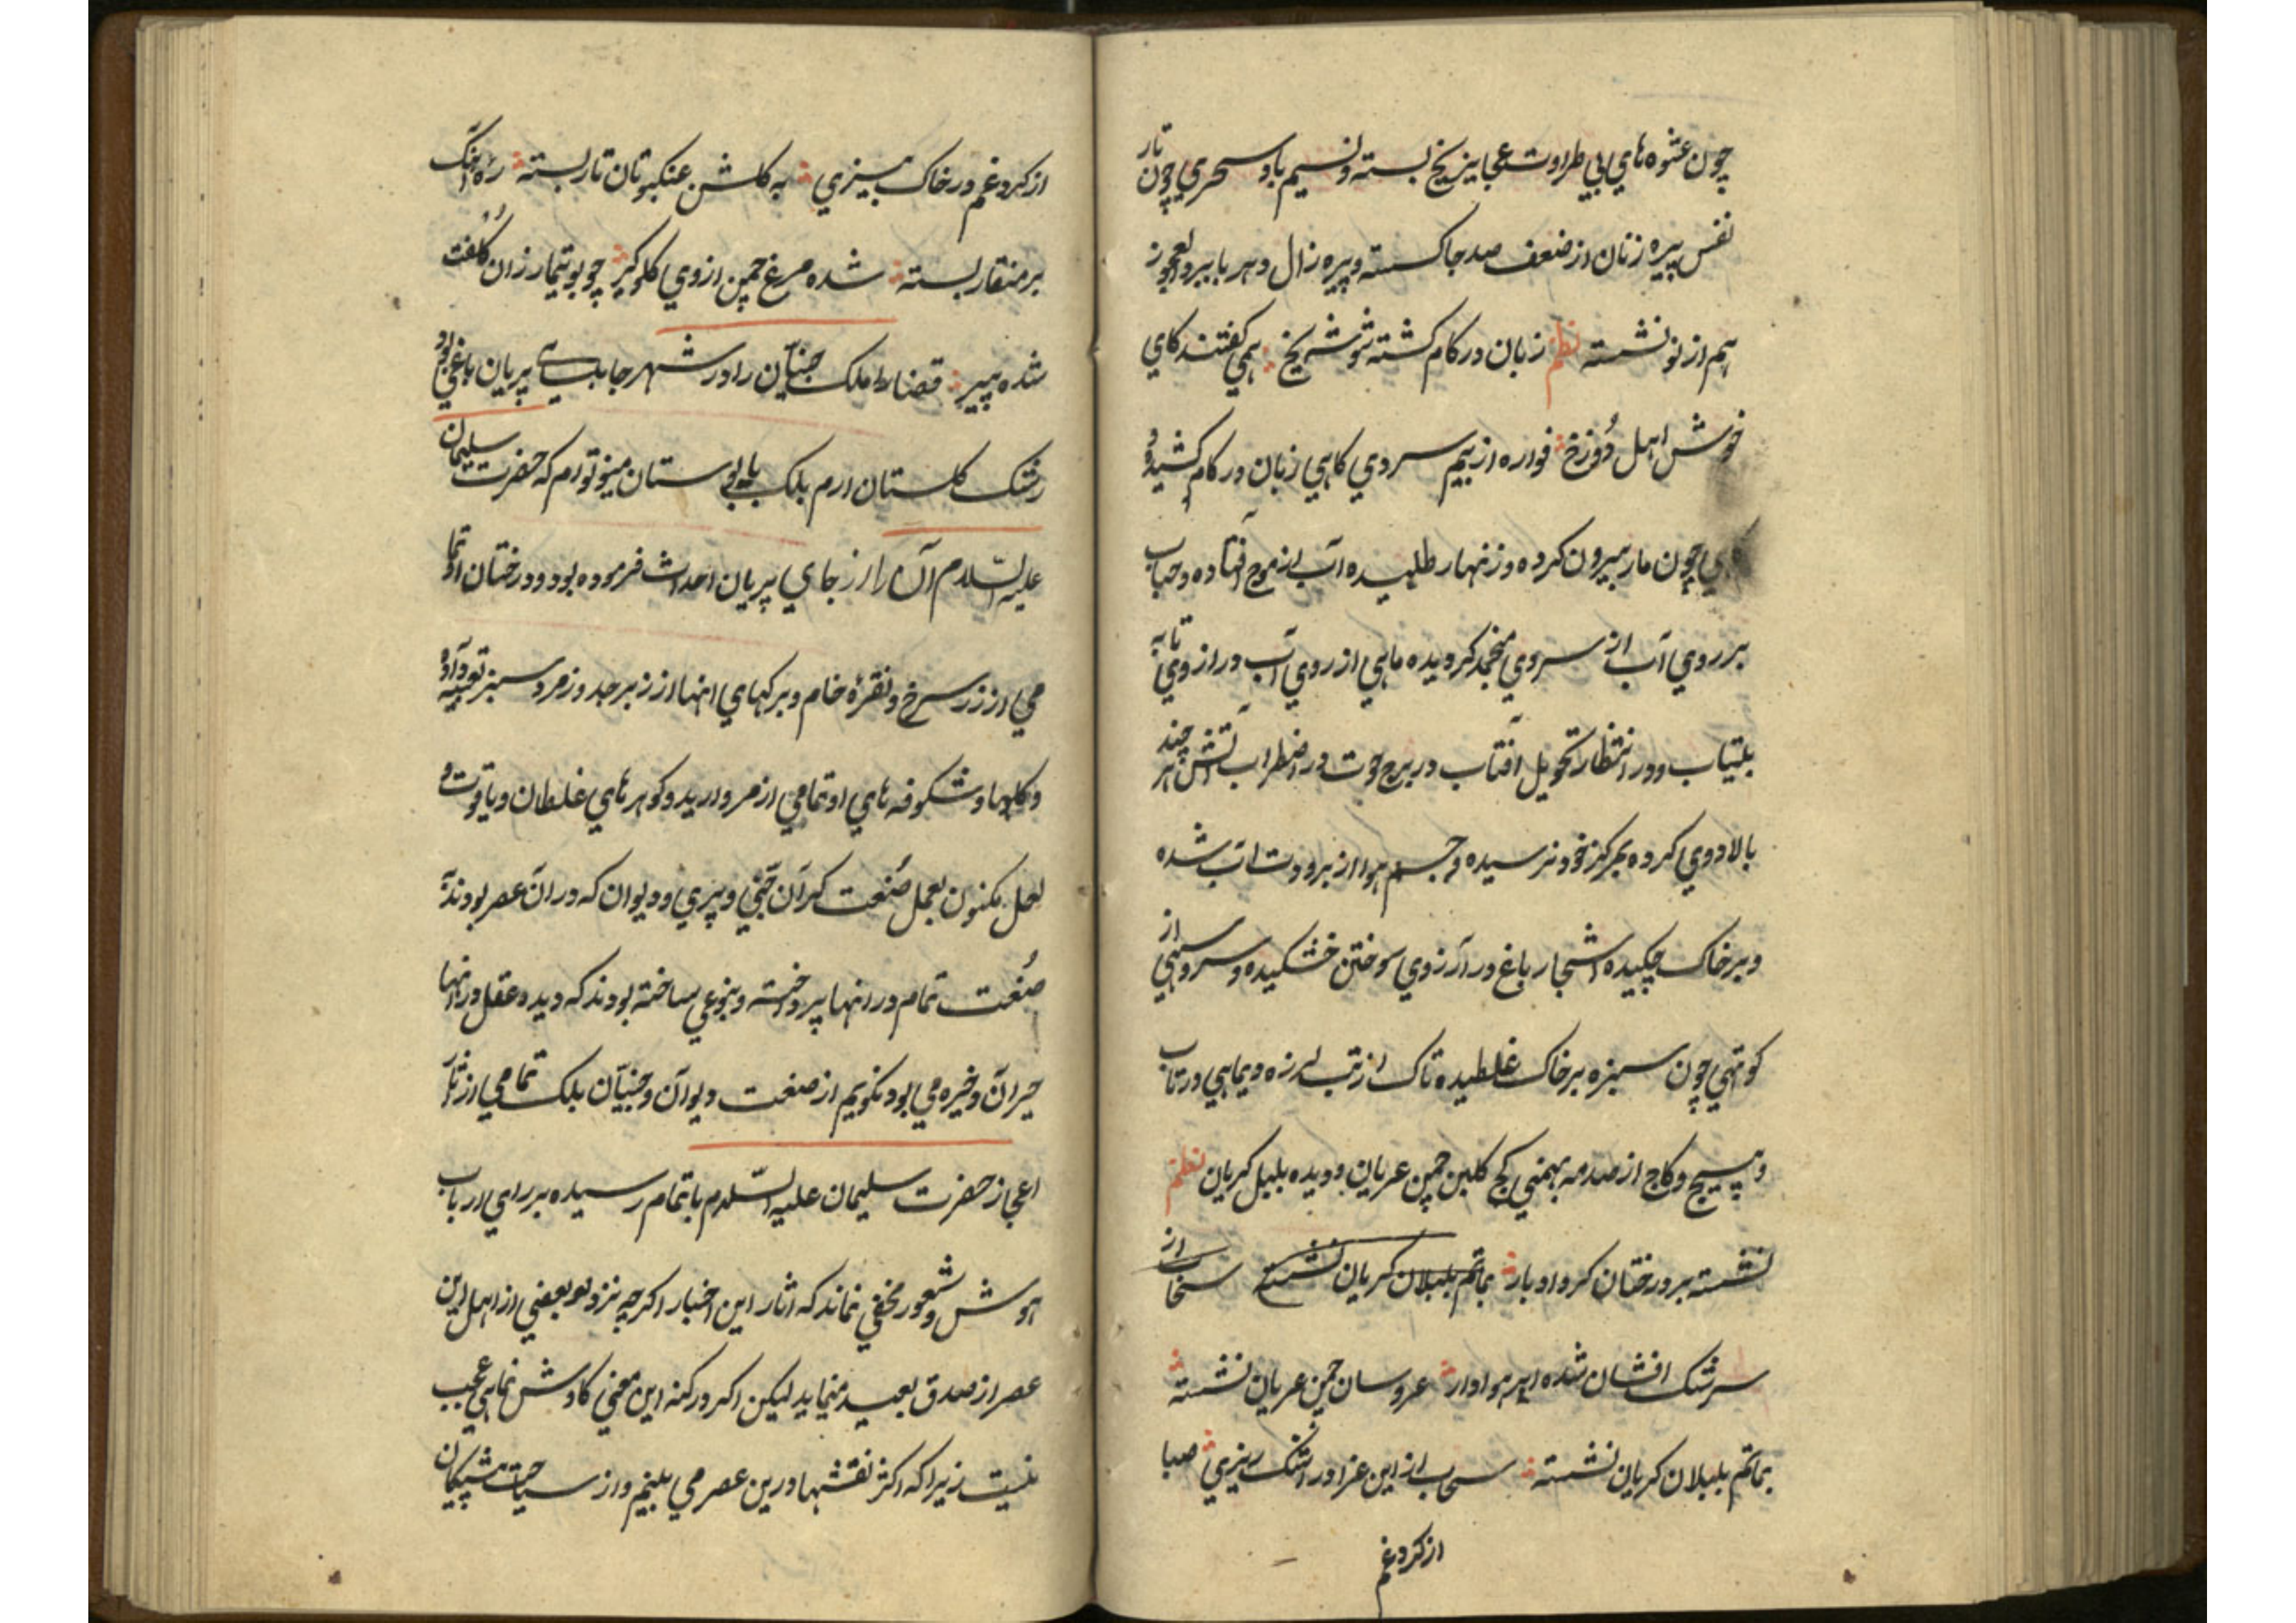 چون عشوه های بی طراوت عجایز یخ بسته و نسیم باد سحری چون تار
نفس پیره زنان از ضعف صد جا کسسته و پیره زال دهر با برد العجوز
هم از نو نشسته نظم زبان در کام کشته شوشه یخ همی کفتند کای
خوش اهل دوزخ فواره از بیم سردی کاهی زبان در کام کشیده و
چون مار بیرون کرده و زنهار طلبیده آب از موج افتاده و حباب
بر روی آب از سردی منجمد کردیده ماهی از روی آب در ارزوی تابه
بیتاب و در انتظار تحویل آفتاب در برج حوت در اضطراب آتش هر چند
بالا دوی کرده بمرکز خود نرسیده و جسم هوا از برودت آب شده
و بر خاک چکیده اشجار باغ در آرزوی سوختن خشکیده و سرو سهی از
کوتهی چون سبزه بر خاک غلطیده تاک از تب لرزه دیماهی در تاب
و پیچ و کاج از صدمه بهمنی کج کلبن چمن عریان و دیده بلبل کریان نظم
نشسته بر درختان کرد ادبار بماتم بلبلان کریان نشسته سحاب از
سرشک افشان شده ابر هوادار عروسان چمن عریان نشسته
بماتم بلبلان کریان نشسته سحاب از این عزا در اشک ریزی صبا
از کرد غم
از کرد غم در خاک بیزی به کلشن عنکبوتان تار بسته ره آهنک
بر منقار بسته شده مرغ چمن از وی کلوکیر چو بوتیمار زان کلفت
شده پیر قضا را ملک جنیان را در شهر جابلسای پریان باغی بود
رشک کلستان ارم بلکه بوستان مینو توأم که حضرت سلیمان
علیه السلام آن را از برای پریان احداث فرموده بود و درختان او تما
می از زر سرخ و نقرهٔ خام و برکهای انها از زبرجد و زمرد سبز تعبیه
و کلها و شکوفه های او تمامی از مروارید و کوهرهای غلطان و یاقوت و
لعل مکنون بعمل صنعت کران جنی و پری و دیوان که در آن عصر بودند
صنعت تمام در انها پرداخته و بنوعی ساخته بودند که دیده عقل در انها
حیران و خیره می بود نکویم از صنعت دیوان و جنیان بلکه تمامی از آثار
اعجاز حضرت سلیمان علیه السلام باتمام رسیده بر رای ارباب
هوش و شعور مخفی نماند که آثار این اخبار اکرچه نزد بعضی از اهل این
عصر از صدق بعید مینماید لیکن اکر در کنه این معنی کاوش نماهی عجب
نیست زیرا که اکثر نقشها درین عصر می بینیم و از سیاحت پیشکان